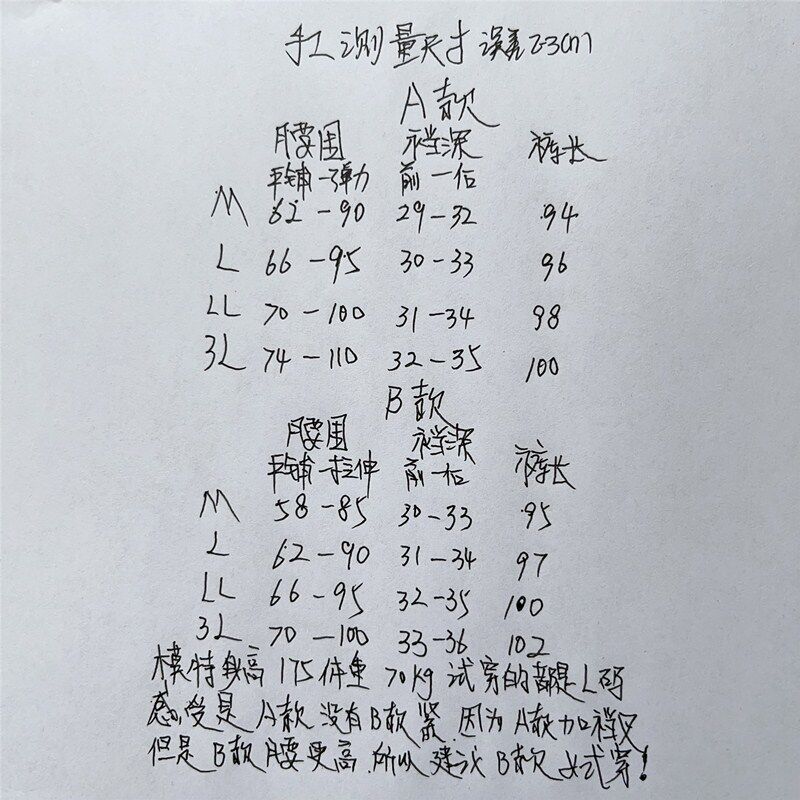 手工测量尺寸 误差2-3cm
A款
腰围 裆深 裤长
平铺-弹力 前-后
M 62-90 29-32 94
L 66-95 30-33 96
LL 70-100 31-34 98
3L 74-110 32-35 100
B款
腰围 裆深 裤长
平铺-拉伸 前-后
M 58-85 30-33 95
L 62-90 31-34 97
LL 66-95 32-35 100
3L 70-100 33-36 102
模特身高175体重70kg 试穿的都是L码
感受是A款没有B款紧.因为A款加裆又
但是B款腰更高.所以建议B款女式穿!